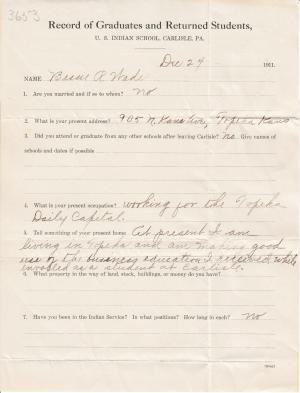 3653
Record of Graduates and Returned Students,
U. S. INDIAN SCHOOL, CARLISLE, PA.
Dec 24 1911.
NAME Bessie R Wade
1. Are you married and if so to whom? No
2. What is your present address? 905 N. Kans Ave, Topeka Kans
3. Did you attend or graduate from any other schools after leaving Carlisle? no Give names
of schools and dates if possible
4. What is your present occupation? Working for the Topeka
Daily Capital.
5. Tell something of your present home At present I am
living in Topeka and am making good
use of the business education I received while
enrolled as a student at Carlisle.
6. What property in the way of land, stock, buildings, or money do you have?
7. Have you been in the Indian Service? In what positions? How long in each? No